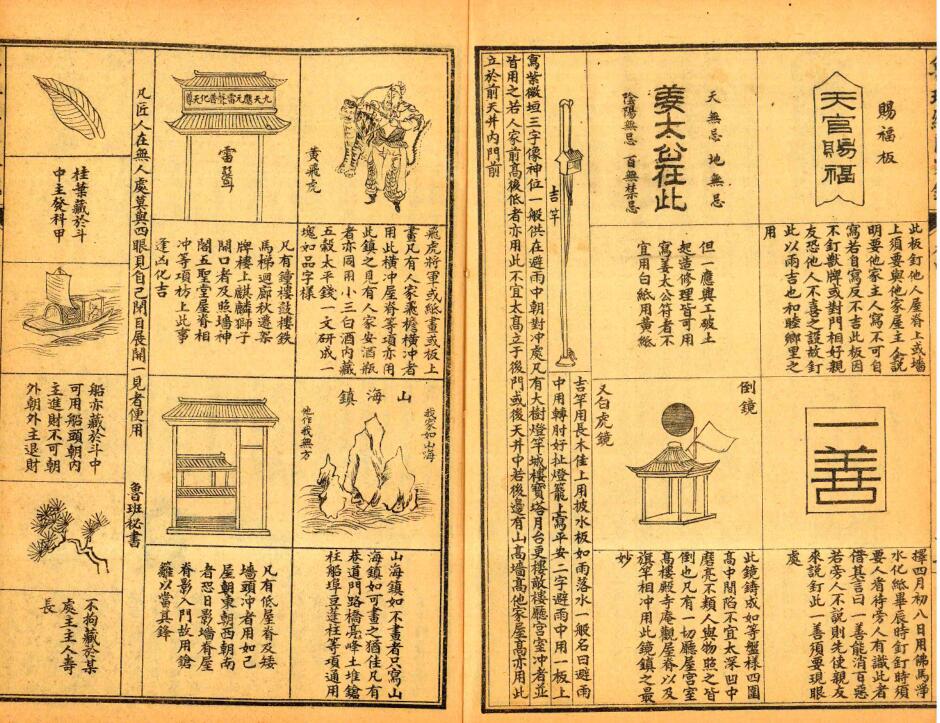 賜福板
天官賜福
此板釘他人屋脊上或墻
上須要與他家屋主仝説
明要他家主人寫不可自
寫若自寫反不吉此板因
不釘獸牌或對門相好親
友恐他人不喜之設故釘
此以兩吉也和睦鄉里之
用
一善
擇四月初八日用佛馬淨
水化紙畢辰時釘釘時須
要人看待旁人有識此者
借其言曰一善能消百惡
若旁人不説則先使親友
來説釘此一善須要現眼
處
天無忌 地無忌
姜太公在此
陰陽無忌 百無禁忌
但一應興工破土
起造修理皆可用
寫姜太公符者不
宜用白紙用黃紙
倒鏡
又白虎鏡
此鏡鑄成如等盤樣四圍
高中間陷不宜太深凹中
磨亮不類人與物照之皆
倒也凡有一切廳屋宮室
高樓殿寺庵觀屋脊以及
旗竿相冲用此鏡鎮之最
妙
吉竿
吉竿用長木佳上用披水板如雨落水一般名曰避雨
中用轉肘好扯燈籠上寫平安二字避雨中用一板上
寫紫微垣三字像神位一般供在避雨中朝對冲處凡有大樹燈竿城樓寶塔月台更樓敵樓廳宮室冲者並
皆用之若人家前高後低者亦用此不宜太高立于後門或後天井中若後邊有山高墻高他家屋高亦用此
立於前天井內門前
黃飛虎
飛虎將軍或紙畫或板上
畫凡有人家飛檐橫冲者
用此橫冲屋脊等項亦用
此鎮之見有人家安酒瓶
者亦同用小三白酒內藏
五穀太平錢一文研成一
塊如品字樣
山海鎮
我家如山海
他作我無方
山海鎮如不畫者只寫山
海鎮如可畫之猶佳凡有
巷道門路橋亮峰土堆鎗
柱船埠豆蓬柱等項通用
九天應元雷聲普化天尊
雷
凡有鐘樓鼓樓鉄
馬梯迴廊秋遷架
牌樓上麒麟獅子
開口者及照墻神
閣五聖堂屋脊相
冲等項枋上此事
逢凶化吉
凡有低屋脊及矮
墻頭冲者用如己
屋朝東朝西朝南
者恐日影墻脊屋
脊影入門故用鎗
籬以當其鋒
凡匠人在無人處莫與四眼見自己閉目展開一見者便用
魯班秘書
桂葉藏於斗
中主發科甲
船亦藏於斗中
可用船頭朝內
主進財不可朝
外朝外主退財
不拘藏於某
處主主人壽
長